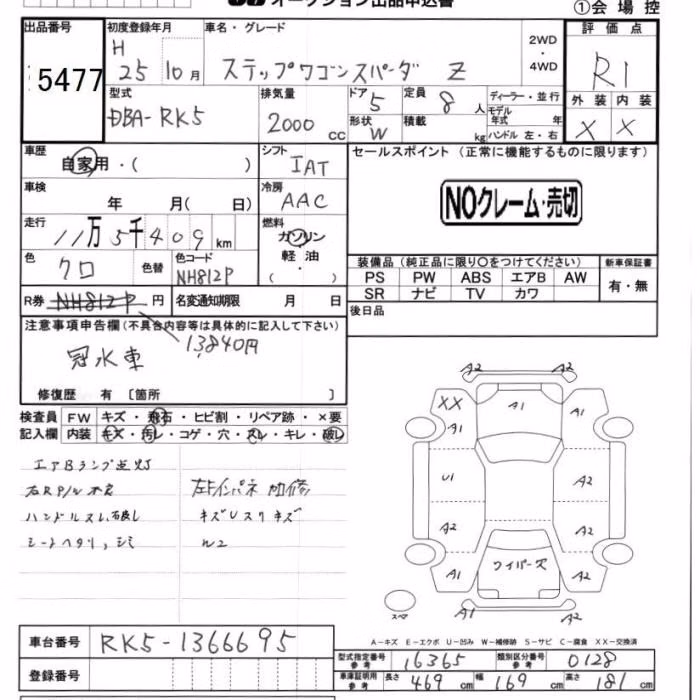 オークション出品申込書
①会場控
出品番号
5477
初度登録年月
H
25 10月
車名・グレード
ステップワゴンスパーダ Z
2WD
・
4WD
評価点
R1
外装 内装
X X
型式
DBA-RK5
排気量
2000 cc
ドア 5
形状 W
定員 8 人
積載 kg
ディーラー・並行
モデル
年式 年
ハンドル 左・右
車歴
自家用・( )
シフト
IAT
冷房
AAC
車検
年 月( 日)
走行
11万5千409km
燃料
ガソリン
軽油
・
( )
色
クロ
色替
色コード
NH812P
R券 NH812P 円
名変通知期限 月 日
セールスポイント (正常に機能するものに限ります)
NOクレーム・売切
装備品 (純正品に限り○をつけてください)
PS PW ABS エアB AW
SR ナビ TV カワ
新車保証書
有・無
後日品
注意事項申告欄(不具合内容等は具体的に記入して下さい)
13,840円
冠水車
修復歴 有 〔箇所 〕
検査員 FW キズ・飛石・ヒビ割・リペア跡・×要
記入欄 内装 キズ・汚レ・コゲ・穴・スレ・キレ・破レ
エアBランプ点灯
右R P/W不良
ハンドルスレ、破レ
シートヘタリ、シミ
キズUスリキズ
W2
A2 A2
XX A1 A1 A1
U1 A2
A2 A2
A1 ワイパーズ A1
スペア
A1 A2
A-キズ E-エクボ U-凹み W-補修跡 S-サビ C-腐食 XX-交換済
車台番号 RK5-1366695
登録番号
型式指定番号
参考 16365
類別区分番号
参考 0128
車庫証明用
参考 長さ 469 cm 幅 169 cm 高さ 181 cm